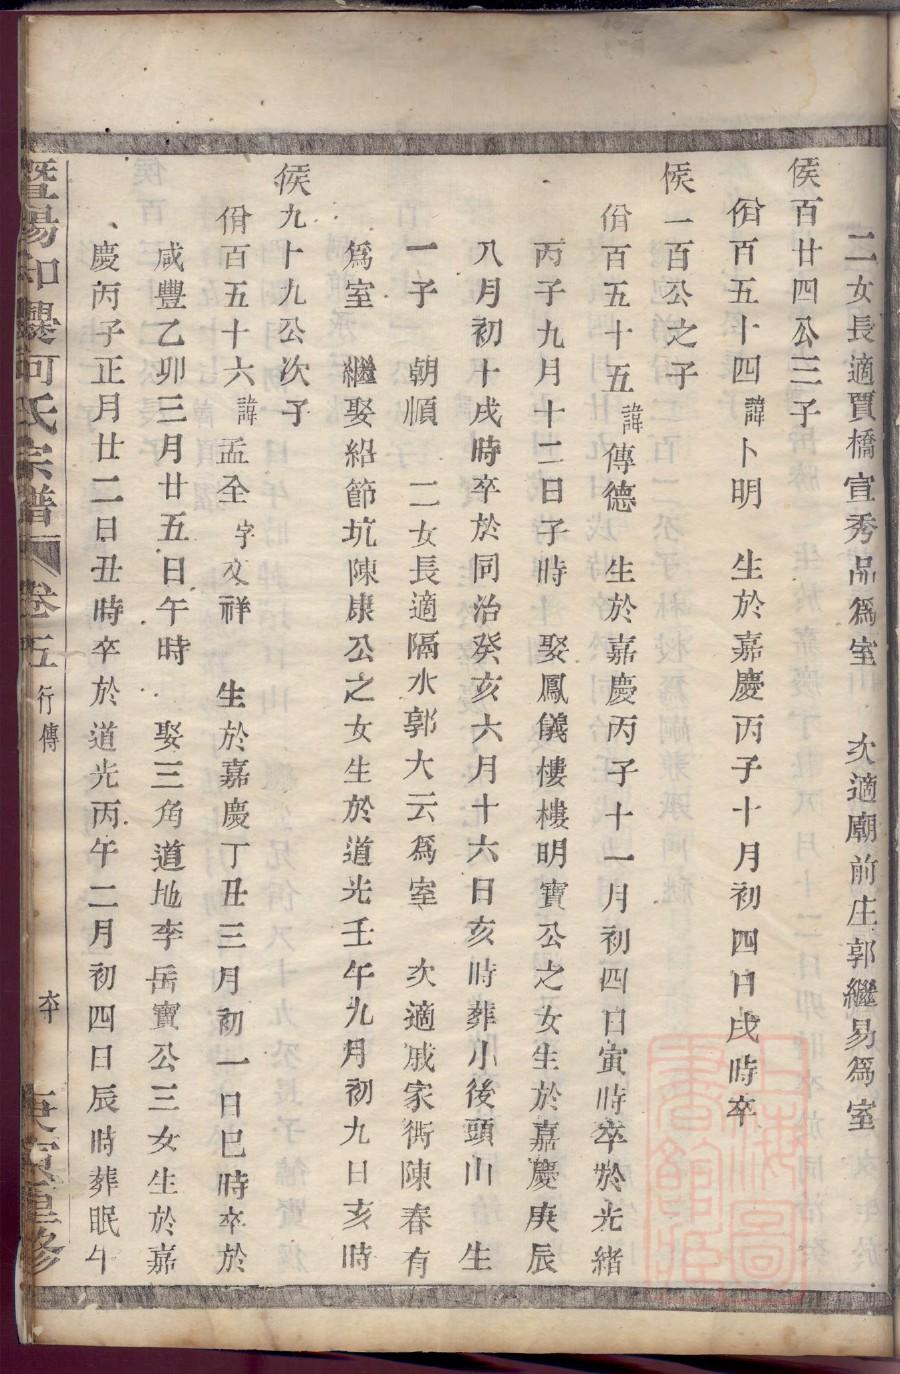 二女長適賈橋宣秀品爲室 次適廟前庄郭繼易爲室
侯百廿四公三子
佾百五十四諱卜明 生於嘉慶丙子十月初四日戌時卒
侯一百公之子
佾百五十五諱傳德 生於嘉慶丙子十一月初四日寅時卒於光緒
丙子九月十二日子時 娶鳳儀樓樓明寶公之女生於嘉慶庚辰
八月初十戌時卒於同治癸亥六月十六日亥時葬小後頭山 生
一子 朝順 二女長適隔水郭大云爲室 次適戚家衖陳春有
爲室 繼娶紹節坑陳康公之女生於道光壬午九月初九日亥時
侯九十九公次子
佾百五十六諱孟全字文祥 生於嘉慶丁丑三月初一日巳時卒於
咸豐乙卯三月廿五日午時 娶三角道地李岳寶公三女生於嘉
慶丙子正月廿二日丑時卒於道光丙午二月初四日辰時葬眠牛
暨陽和㸑何氏宗譜 卷五 行傳 庚寅重修